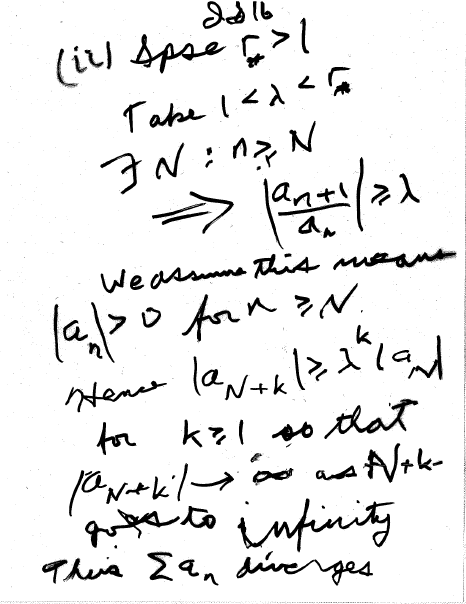 (ii) Spse r_* > 1
Take 1 < λ < r_*
∃ N : n ≥ N
⟹ |a_{n+1}/a_n| ≥ λ
We assume this means
|a_n| > 0 for n ≥ N
Hence |a_{N+k}| ≥ λ^k |a_N|
for k ≥ 1 so that
|a_{N+k}| → ∞ as N+k
goes to infinity
Thus Σ a_n diverges